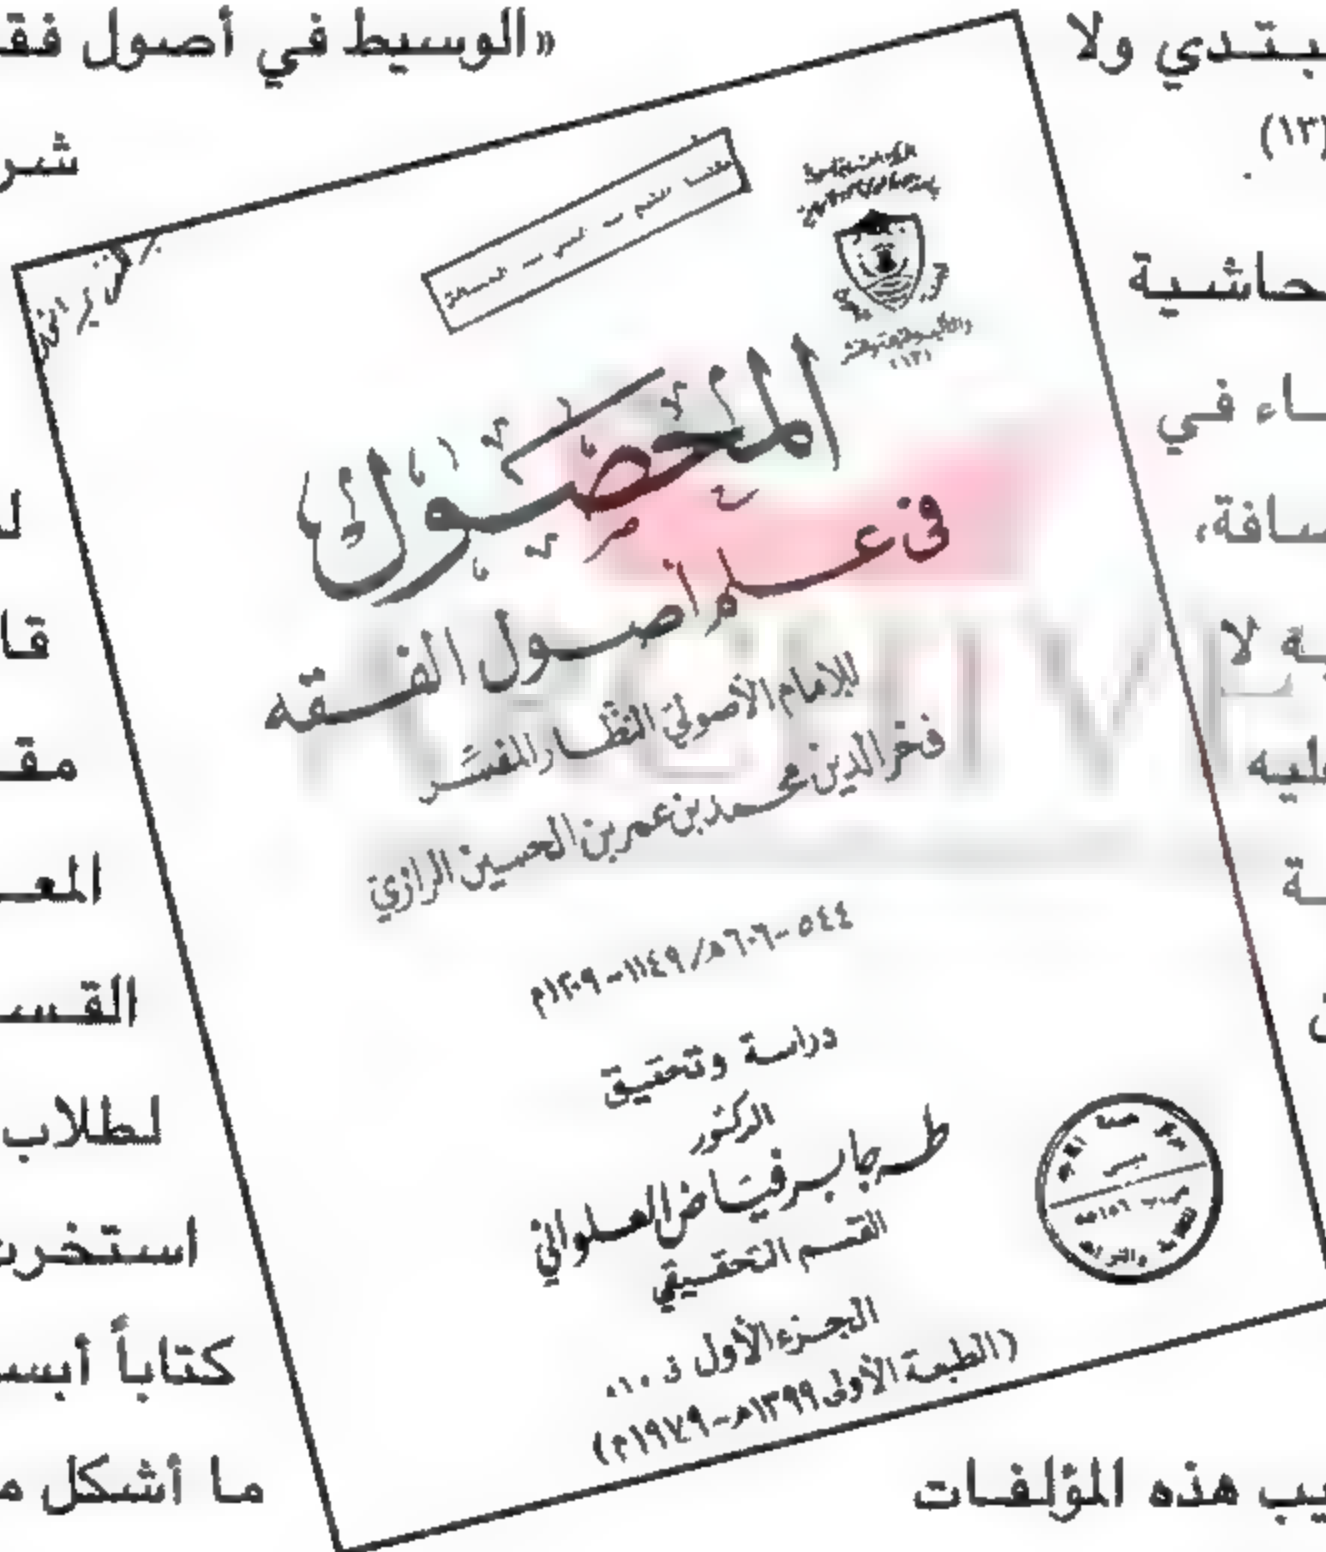 ـبـتـدي ولا
(١٣).
ـحاشـيـة
ـاء في
ـسافة،
ـة لا
ـليه
ـة
يب هذه المؤلفـات
المحصول
في علم أصول الفقه
للإمام الأصولي النظار المفسر
فخر الدين محمد بن عمر بن الحسين الرازي
٥٤٤-٦٠٦هـ/١١٤٩-١٢٠٩م
دراسة وتحقيق
الدكتور
طه جابر فياض العلواني
القسم التحقيقي
الجزء الأول
(الطبعة الأولى ١٣٩٩هـ-١٩٧٩م)
«الوسيط في أصول فقـ
شر
لـ
قا
مقـ
المعـ
القـسـ
لطلاب
استخرت
كتاباً أبسـ
ما أشكل مـ